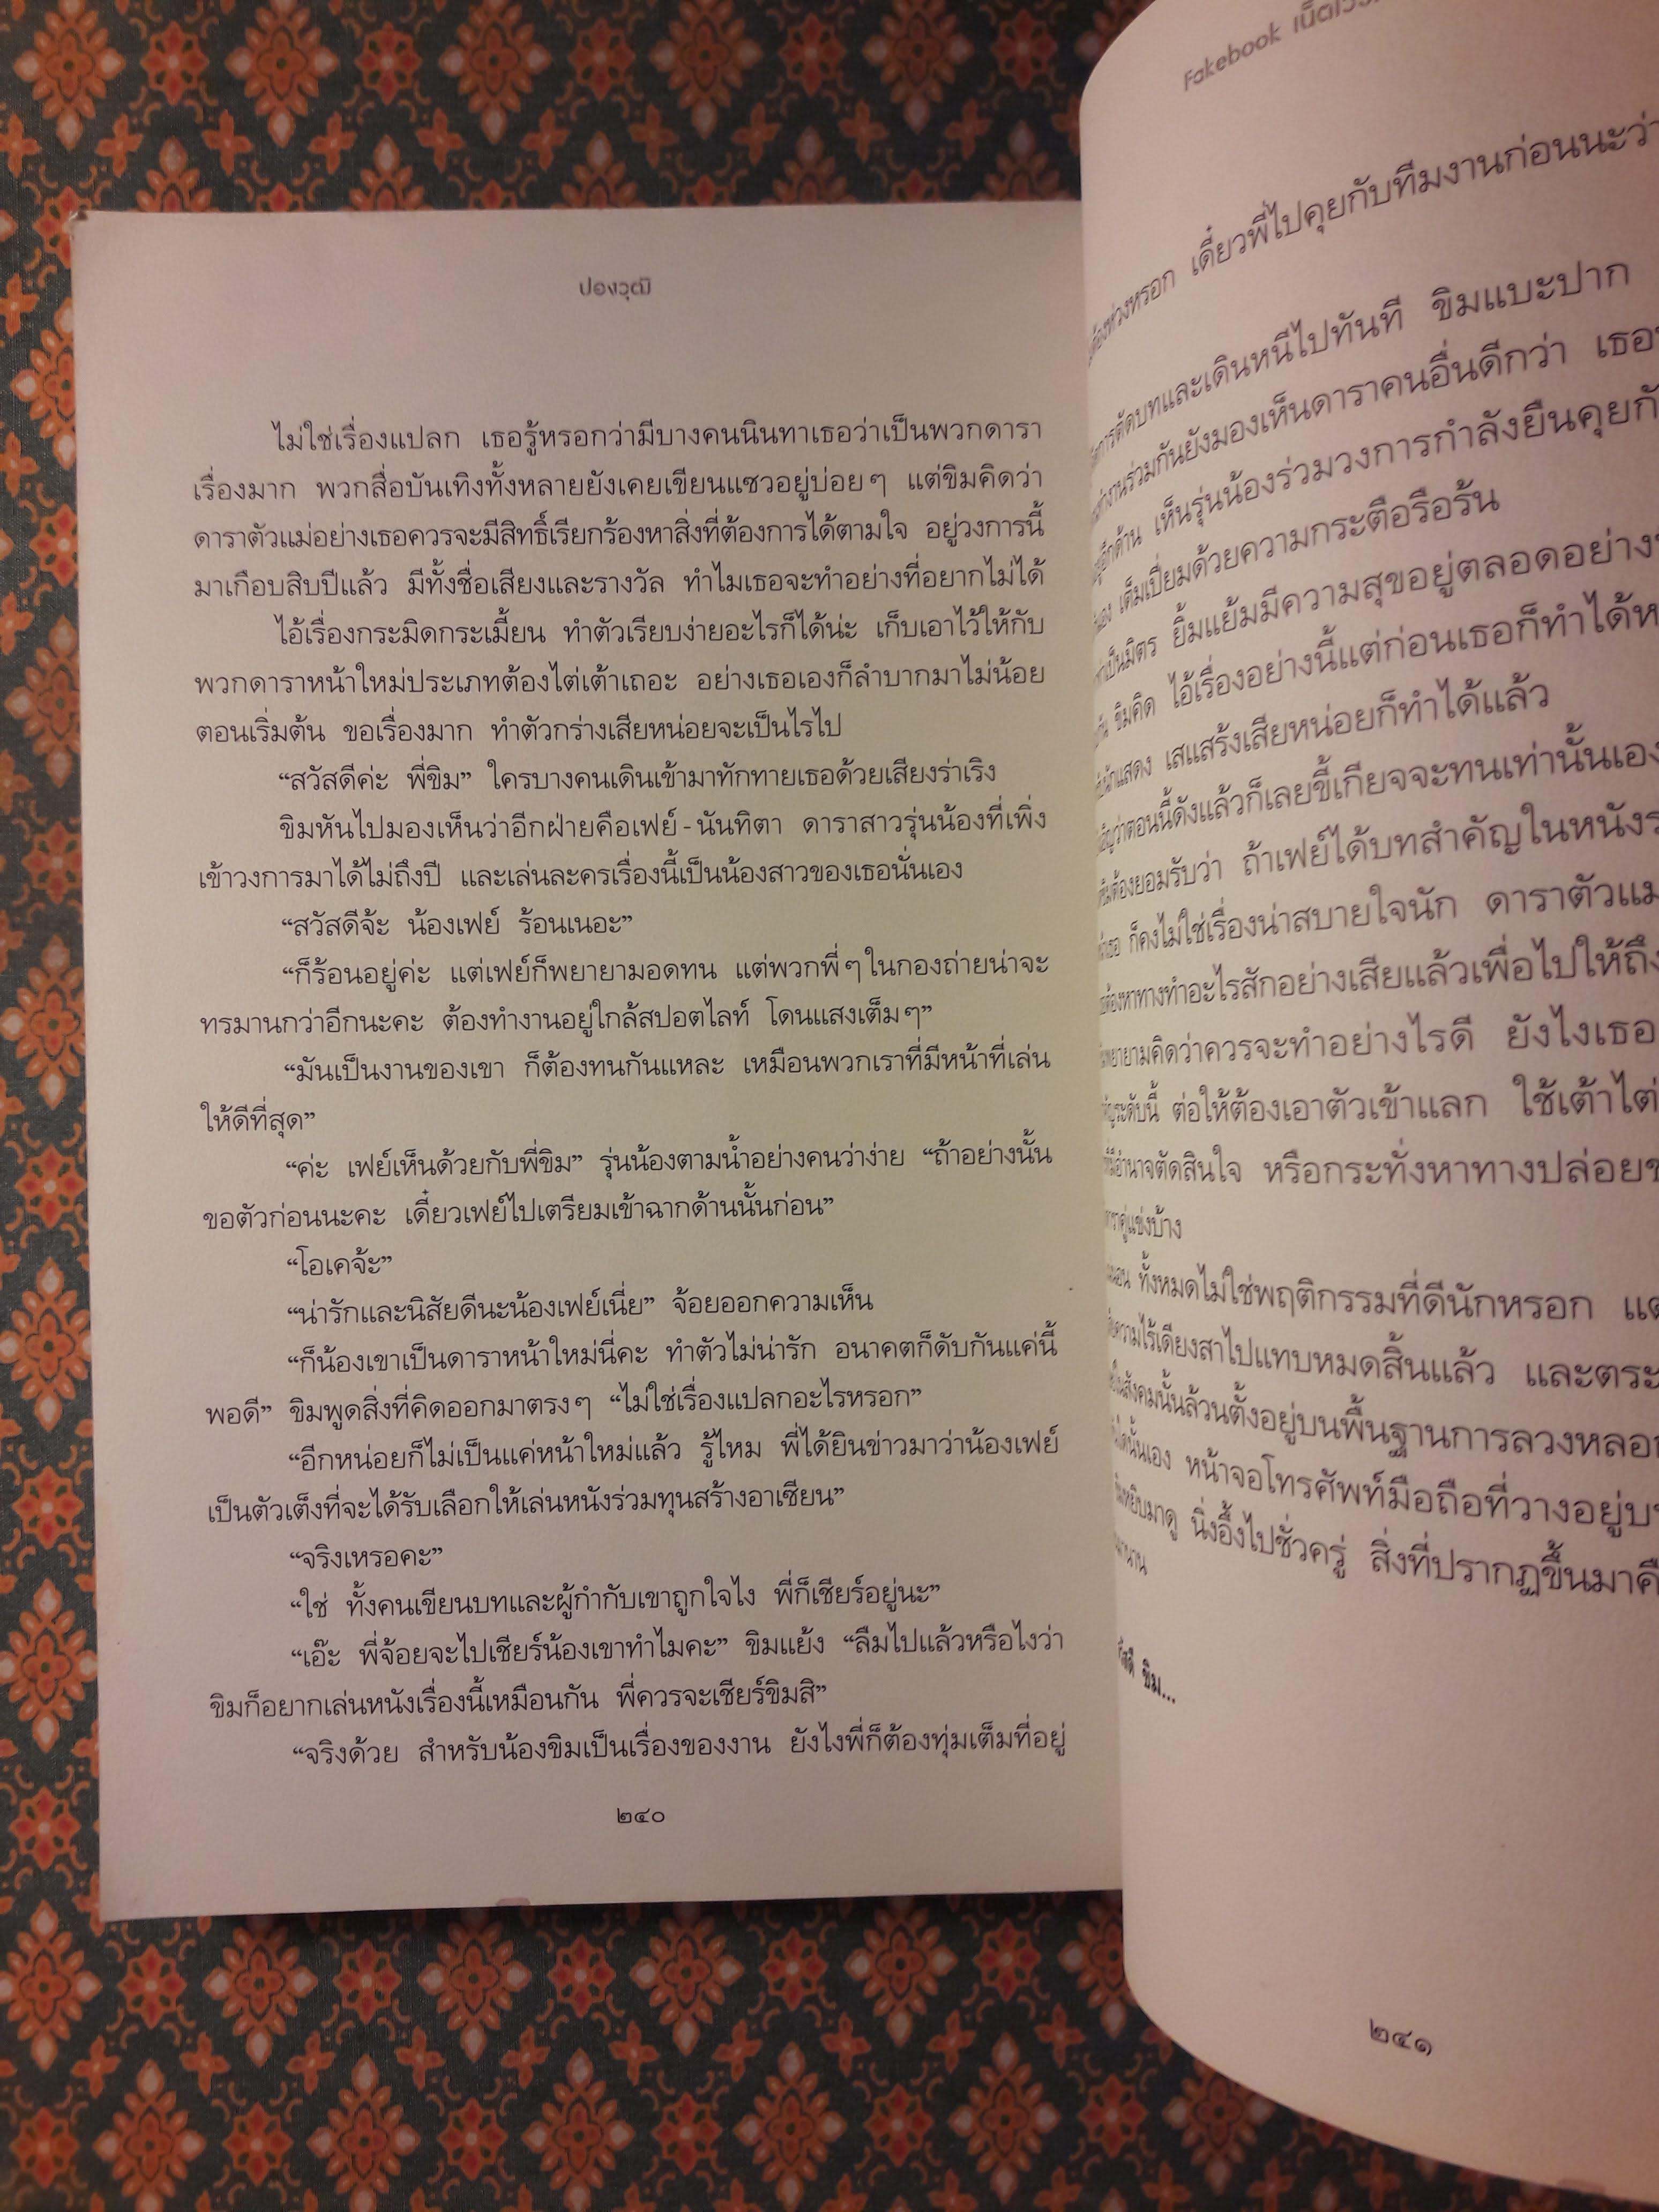 ปองวุฒิ
ไม่ใช่เรื่องแปลก เธอรู้หรอกว่ามีบางคนนินทาเธอว่าเป็นพวกดารา
เรื่องมาก พวกสื่อบันเทิงทั้งหลายยังเคยเขียนแซวอยู่บ่อยๆ แต่ขิมคิดว่า
ดาราตัวแม่อย่างเธอควรจะมีสิทธิ์เรียกร้องหาสิ่งที่ต้องการได้ตามใจ อยู่วงการนี้
มาเกือบสิบปีแล้ว มีทั้งชื่อเสียงและรางวัล ทำไมเธอจะทำอย่างที่อยากไม่ได้
ไอ้เรื่องกระมิดกระเมี้ยน ทำตัวเรียบง่ายอะไรก็ได้น่ะ เก็บเอาไว้ให้กับ
พวกดาราหน้าใหม่ประเภทต้องไต่เต้าเถอะ อย่างเธอเองก็ลำบากมาไม่น้อย
ตอนเริ่มต้น ขอเรื่องมาก ทำตัวกร่างเสียหน่อยจะเป็นไรไป
“สวัสดีค่ะ พี่ขิม” ใครบางคนเดินเข้ามาทักทายเธอด้วยเสียงร่าเริง
ขิมหันไปมองเห็นว่าอีกฝ่ายคือเฟย์-นันทิตา ดาราสาวรุ่นน้องที่เพิ่ง
เข้าวงการมาได้ไม่ถึงปี และเล่นละครเรื่องนี้เป็นน้องสาวของเธอนั่นเอง
“สวัสดีจ้ะ น้องเฟย์ ร้อนเนอะ”
“ก็ร้อนอยู่ค่ะ แต่เฟย์ก็พยายามอดทน แต่พวกพี่ๆในกองถ่ายน่าจะ
ทรมานกว่าอีกนะคะ ต้องทำงานอยู่ใกล้สปอตไลท์ โดนแสงเต็มๆ”
“มันเป็นงานของเขา ก็ต้องทนกันแหละ เหมือนพวกเราที่มีหน้าที่เล่น
ให้ดีที่สุด”
“ค่ะ เฟย์เห็นด้วยกับพี่ขิม” รุ่นน้องตามน้ำอย่างคนว่าง่าย “ถ้าอย่างนั้น
ขอตัวก่อนนะคะ เดี๋ยวเฟย์ไปเตรียมเข้าฉากด้านนั้นก่อน”
“โอเคจ้ะ”
“น่ารักและนิสัยดีนะน้องเฟย์เนี่ย” จ้อยออกความเห็น
“ก็น้องเขาเป็นดาราหน้าใหม่นี่คะ ทำตัวไม่น่ารัก อนาคตก็ดับกันแค่นี้
พอดี” ขิมพูดสิ่งที่คิดออกมาตรงๆ “ไม่ใช่เรื่องแปลกอะไรหรอก”
“อีกหน่อยก็ไม่เป็นแค่หน้าใหม่แล้ว รู้ไหม พี่ได้ยินข่าวมาว่าน้องเฟย์
เป็นตัวเต็งที่จะได้รับเลือกให้เล่นหนังร่วมทุนสร้างอาเซียน”
“จริงเหรอคะ”
“ใช่ ทั้งคนเขียนบทและผู้กำกับเขาถูกใจไง พี่ก็เชียร์อยู่นะ”
“เอ๊ะ พี่จ้อยจะไปเชียร์น้องเขาทำไมคะ” ขิมแย้ง “ลืมไปแล้วหรือไงว่า
ขิมก็อยากเล่นหนังเรื่องนี้เหมือนกัน พี่ควรจะเชียร์ขิมสิ”
“จริงด้วย สำหรับน้องขิมเป็นเรื่องของงาน ยังไงพี่ก็ต้องทุ่มเต็มที่อยู่
๒๔๐
Fakebook
เดี๋ยวพี่ไปคุยกับทีมงานก่อนนะว่า
ตัดบทและเดินหนีไปทันที ขิมแบะปาก
งานร่วมกันยังมองเห็นดาราคนอื่นดีกว่า
อีกด้าน เห็นรุ่นน้องร่วมวงการกำลังยืนคุย
เต็มเปี่ยมด้วยความกระตือรือร้น
เป็นมิตร ยิ้มแย้มมีความสุขอยู่ตลอดอย่าง
ขิมคิด ไอ้เรื่องอย่างนี้แต่ก่อนเธอก็ทำได้
นักแสดง เสแสร้งเสียหน่อยก็ทำได้แล้ว
ว่าตอนนี้ดังแล้วก็เลยขี้เกียจจะทนเท่านั้นเอง
ต้องยอมรับว่า ถ้าเฟย์ได้บทสำคัญในหนัง
ก็คงไม่ใช่เรื่องน่าสบายใจนัก ดาราตัวแม่
ต้องหาทางทำอะไรสักอย่างเสียแล้วเพื่อไปให้ถึง
พยายามคิดว่าควรจะทำอย่างไรดี ยังไงเธอ
ระดับนี้ ต่อให้ต้องเอาตัวเข้าแลก ใช้เต้าไต่
มีอำนาจตัดสินใจ หรือกระทั่งหาทางปล่อย
คู่แข่งบ้าง
ทั้งหมดไม่ใช่พฤติกรรมที่ดีนักหรอก
ความไร้เดียงสาไปแทบหมดสิ้นแล้ว และ
สังคมนั้นล้วนตั้งอยู่บนพื้นฐานการลวงหลอก
นั้นเอง หน้าจอโทรศัพท์มือถือที่วางอยู่
หยิบมาดู นิ่งอึ้งไปชั่วครู่ สิ่งที่ปรากฏขึ้นมา
ขิม...
๒๔๑